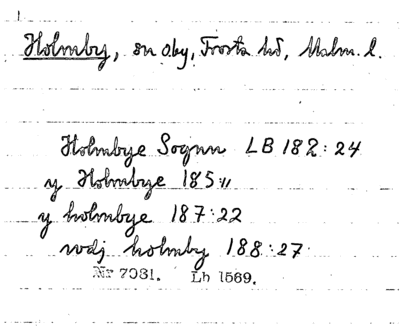 Holmby, sn o by, Frosta hd, Malm. l.
Holmbye Sognn LB 182:24
y Holmbye 185:11
y holmbye 187:22
wdj holmby 188:27
Nr 7031. Lb 1569.